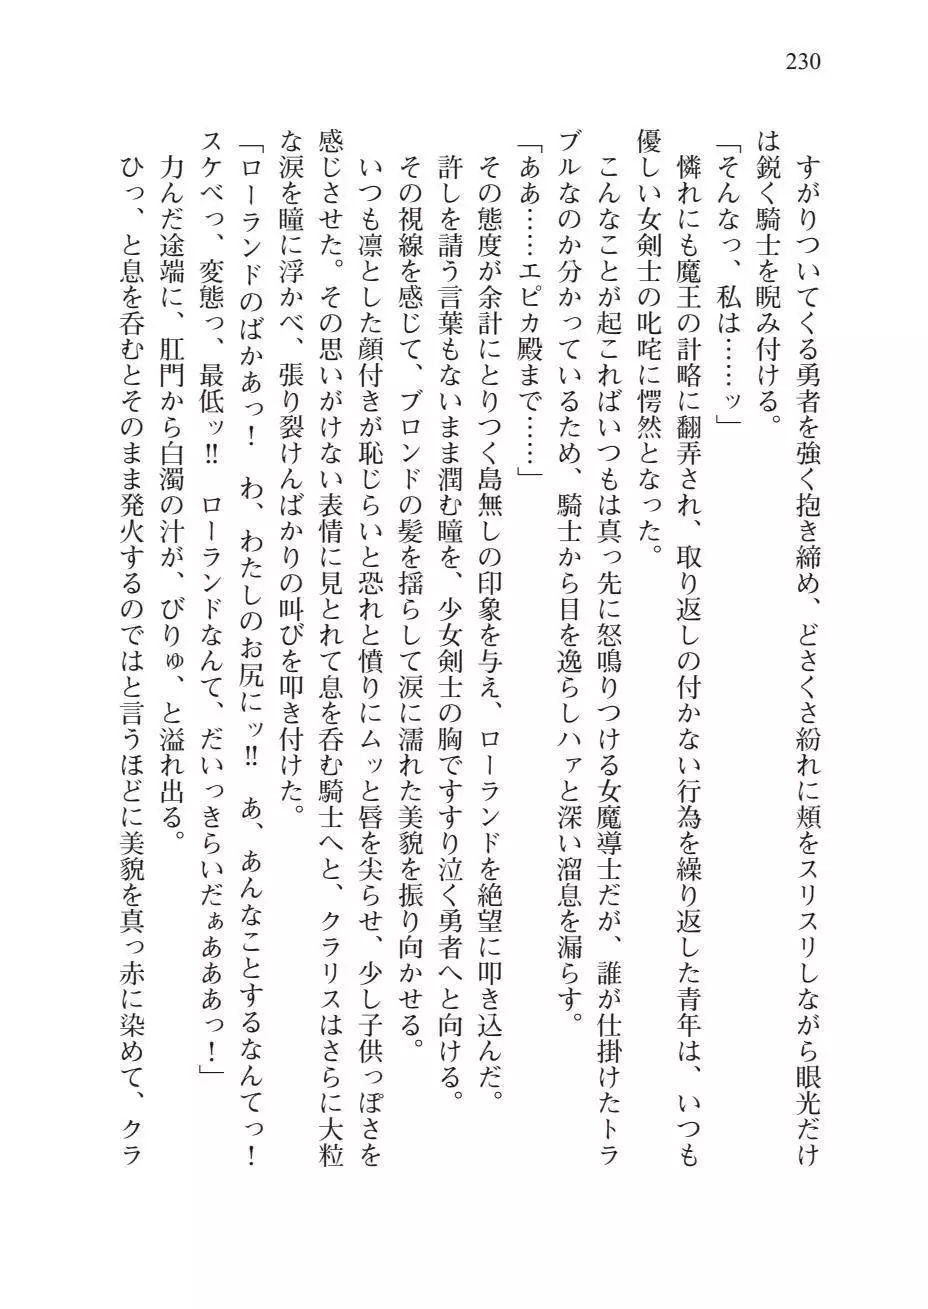 230
すがりついてくる勇者を強く抱き締め、どさくさ紛れに頬をスリスリしながら眼光だけ
は鋭く騎士を睨み付ける。
「そんなっ、私は……ッ」
憐れにも魔王の計略に翻弄され、取り返しの付かない行為を繰り返した青年は、いつも
優しい女剣士の叱咤に愕然となった。
こんなことが起こればいつもは真っ先に怒鳴りつける女魔導士だが、誰が仕掛けたトラ
ブルなのか分かっているため、騎士から目を逸らしハァと深い溜息を漏らす。
「ああ……エピカ殿まで……」
その態度が余計にとりつく島無しの印象を与え、ローランドを絶望に叩き込んだ。
許しを請う言葉もないまま潤む瞳を、少女剣士の胸ですすり泣く勇者へと向ける。
その視線を感じて、ブロンドの髪を揺らして涙に濡れた美貌を振り向かせる。
いつも凛とした顔付きが恥じらいと恐れと憤りにムッと唇を尖らせ、少し子供っぽさを
感じさせた。その思いがけない表情に見とれて息を呑む騎士へと、クラリスはさらに大粒
な涙を瞳に浮かべ、張り裂けんばかりの叫びを叩き付けた。
「ローランドのばかあっ！　わ、わたしのお尻にッ‼　あ、あんなことするなんてっ！
スケベっ、変態っ、最低ッ‼　ローランドなんて、だいっきらいだぁあああっ！」
力んだ途端に、肛門から白濁の汁が、びりゅ、と溢れ出る。
ひっ、と息を呑むとそのまま発火するのではと言うほどに美貌を真っ赤に染めて、クラ